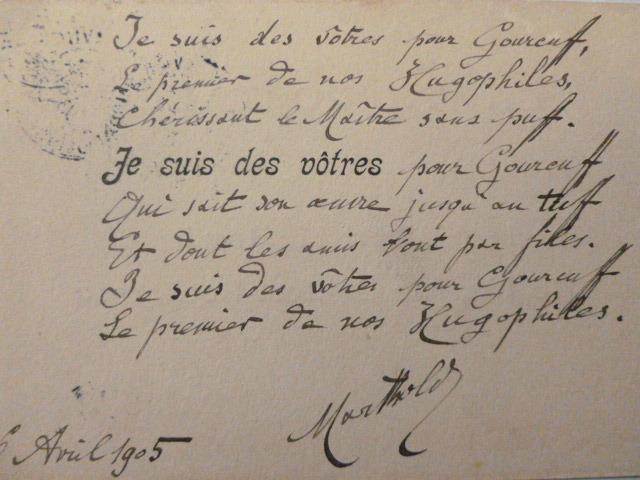 Je suis des vôtres pour Goureuff,
Le premier de nos Hugophiles,
Chérissant le Maître sans puff.
Je suis des vôtres pour Goureuff
Qui sait son œuvre jusqu'au tuff
Et dont les amis vont par files.
Je suis des vôtres pour Goureuff
Le premier de nos Hugophiles.
Marthold
6 Avril 1905